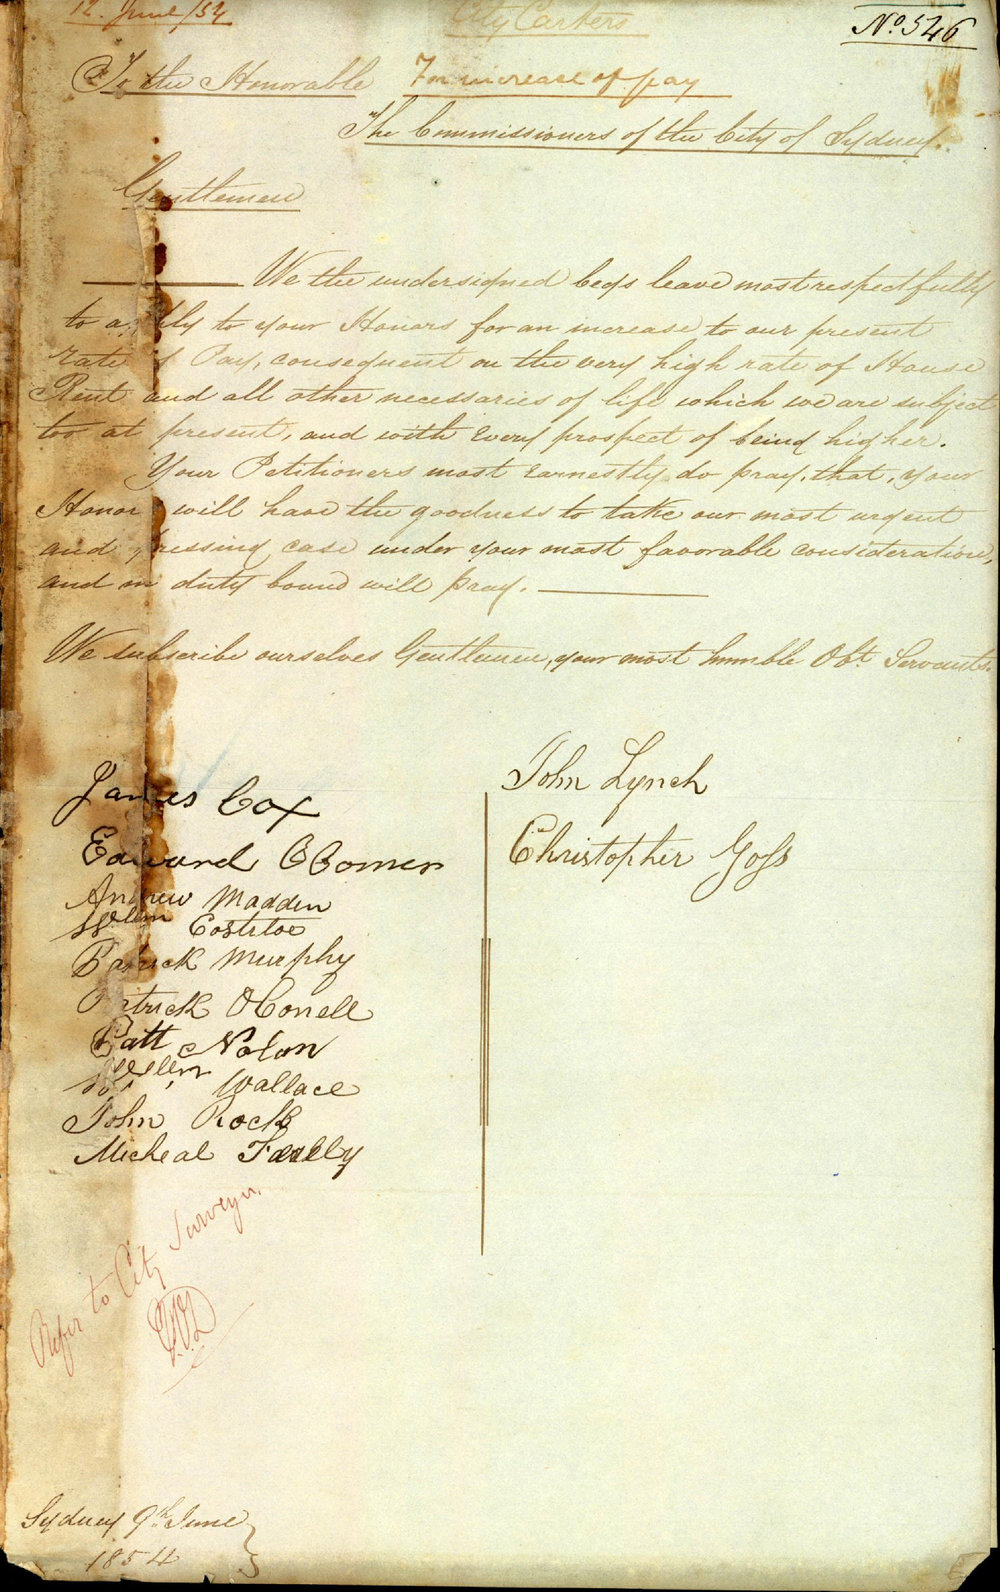 12. June /54
City Carters
No. 546
To the Honorable
For increase of pay
The Commissioners of the City of Sydney.
Gentlemen
We the undersigned begs leave most respectfully
to apply to your Honors for an increase to our present
rate of Pay, consequent on the very high rate of House
Rent and all other necessaries of life which we are subject
too at present, and with every prospect of being higher.
Your Petitioners most earnestly do pray, that, your
Honors will have the goodness to take our most urgent
and pressing case under your most favorable consideration,
and in duty bound will pray.
We subscribe ourselves Gentlemen, your most humble Obt. Servants.
James Cox
Edward OConner
Andrew Madden
Willem Costitoe
Patrick Murphy
Patrick OConell
Patt Nolan
Willem Wallace
John Rock
Micheal
John Lynch
Christopher Goss
Refer to City Surveyor
Sydney 9th June
1854